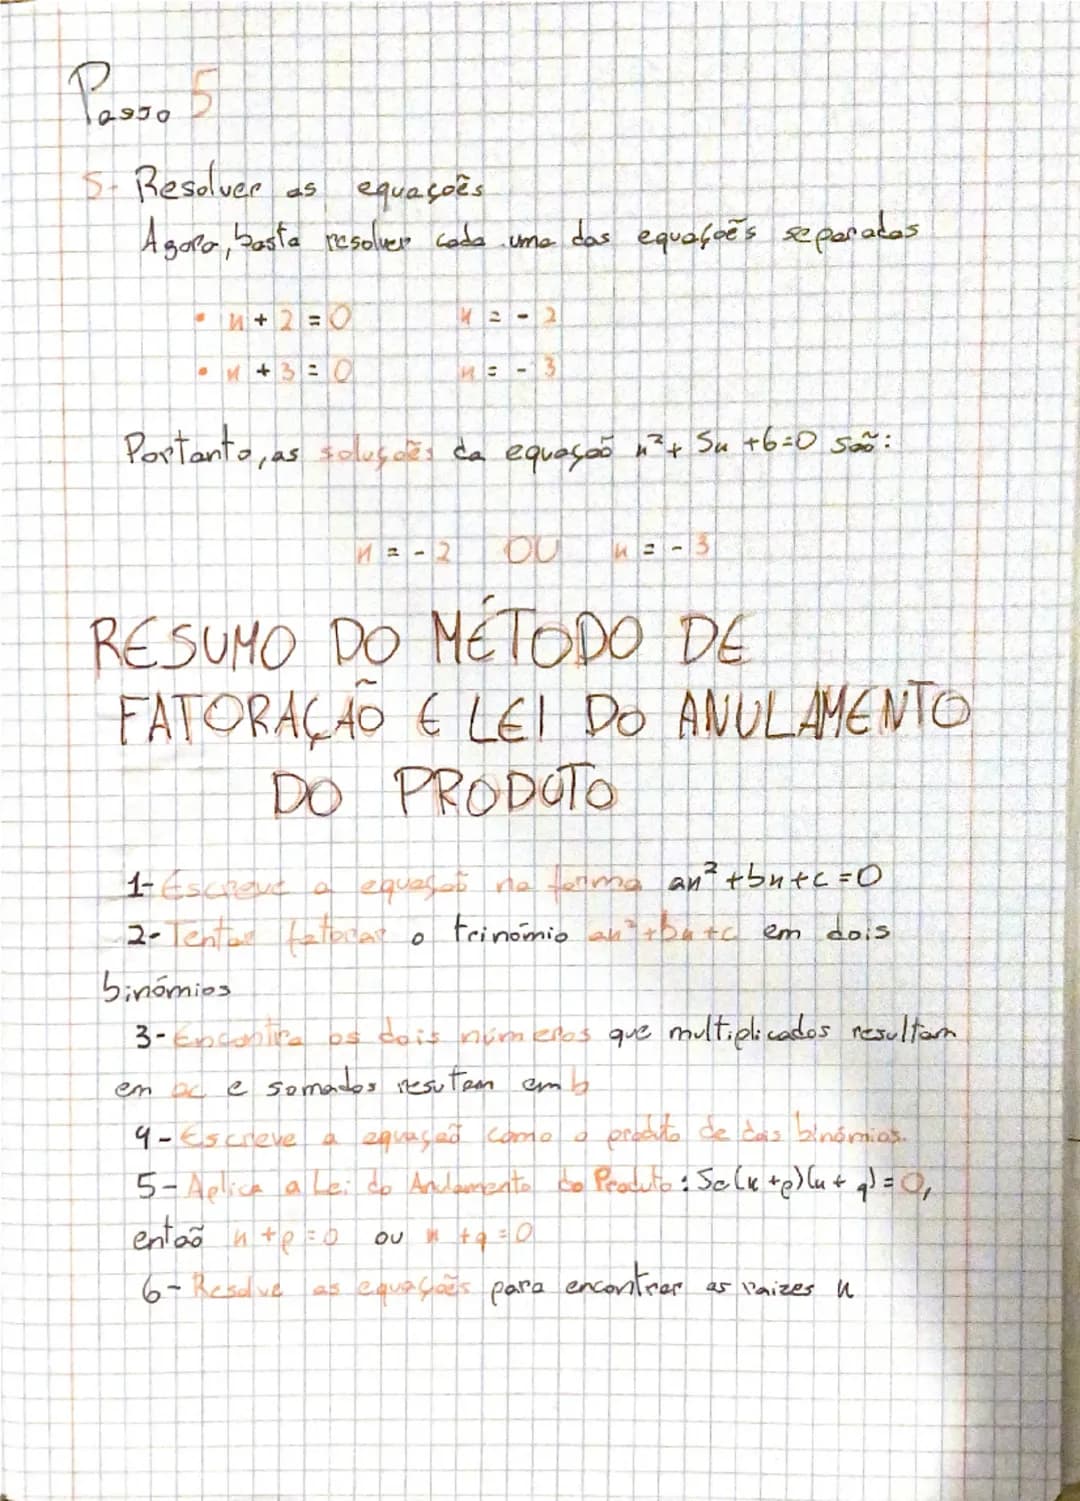 Passo 5
5- Resolver as equaçoẽs
Agora, basta resolver cada uma das equaçoẽs separadas
• x + 2 = 0 x = - 2
• x + 3 = 0 x = - 3
Portanto, as soluçoẽs da equaçaõ x² + 5x + 6 = 0 saõ:
x = - 2 OU x = - 3
RESUMO DO MÉTODO DE
FATORAÇÃO E LEI DO ANULAMENTO
DO PRODUTO
1- Escreve a equaçaõ na forma ax² + bx + c = 0
2- Tentar fatorar o trinómio ax² + bx + c em dois
binómios
3- Encontra os dois números que multiplicados resultam
em ac e somados resutam em b
4- Escreve a equaçaõ como o produto de dois binómios.
5- Aplica a Lei do Anulamento do Produto: Se (x + p)(x + q) = 0,
entaõ x + p = 0 ou x + q = 0
6- Resolve as equaçoẽs para encontrar as raizes x